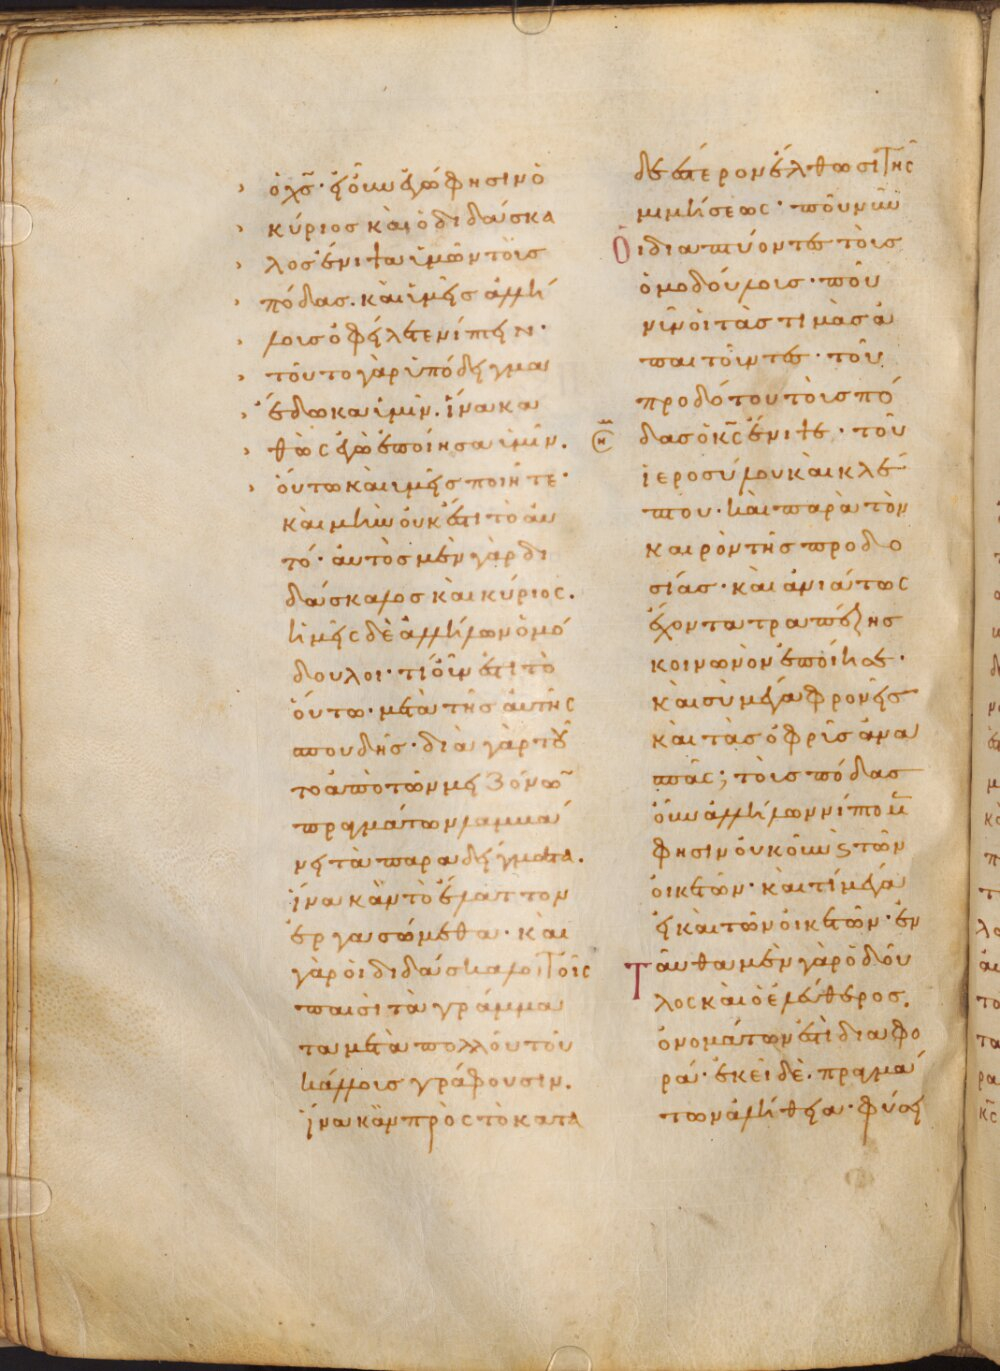 ὁ χς̄· εἰ οὖν ἐγώ φησιν ὁ
κύριος καὶ ὁ διδάσκα
λος ἔνιψα ὑμῶν τοὺς
πόδας. καὶ ὑμεῖς ἀλλή
λοις ὀφείλετε νίπτειν·
τοῦτο γὰρ ὑπόδειγμα
ἔδωκα ὑμῖν. ἵνα κα
θὼς ἐγὼ ἐποίησα ὑμῖν.
οὕτω καὶ ὑμεῖς ποιῆτε·
καὶ μὴν οὐκ ἔστι τὸ αὐ
τό· αὐτὸς μὲν γὰρ δι
δάσκαλος καὶ κύριος.
ἡμεῖς δὲ ἀλλήλων ὁμό
δουλοι· τί οὖν ἐστι τὸ
οὕτω· μετὰ τῆς αὐτῆς
σπουδῆς· διὰ γὰρ τοῦ
το ἀπὸ τῶν μειζόνων
πραγμάτων λαμβά
νει τὰ παραδείγματα.
ἵνα κἂν τὸ ἔλαττον
ἐργασώμεθα· καὶ
γὰρ οἱ διδάσκαλοι τοῖς
παισὶ τὰ γράμμα
τα μετὰ πολλοῦ τοῦ
κάλλους γράφουσιν.
ἵνα κἂν πρὸς τὸ κατα
δεέστερον ἔλθωσι τῆς
μιμήσεως· ποῦ νῦν
οἱ διαπτύοντες τοὺς
ὁμοδούλους· ποῦ
νῦν οἱ τὰς τιμὰς ἀ
παιτοῦντες· τοῦ
προδότου τοὺς πό
δας ὁ κς̄ ἔνιψε· τοῦ
ἱεροσύλου καὶ κλέ
πτου· καὶ παρὰ τὸν
καιρὸν τῆς προδο
σίας· καὶ ἀνιάτως
ἔχοντα τραπέζης
κοινωνὸν ἐποίησε·
καὶ σὺ μέγα φρονεῖς
καὶ τὰς ὀφρῦς ἀνα
σπᾷς; τοὺς πόδας
οὖν ἀλλήλων νίπτωμεν
φησιν οὐκοῦν καὶ τῶν
οἰκετῶν· καὶ τί μέγα
εἰ καὶ τῶν οἰκετῶν· ἐν
ταῦθα μὲν γὰρ ὁ δοῦ
λος καὶ ὁ ἐλεύθερος.
ὀνομάτων ἐστὶ διαφο
ρά· ἐκεῖ δὲ. πραγμά
των ἀλήθεια· φύσει